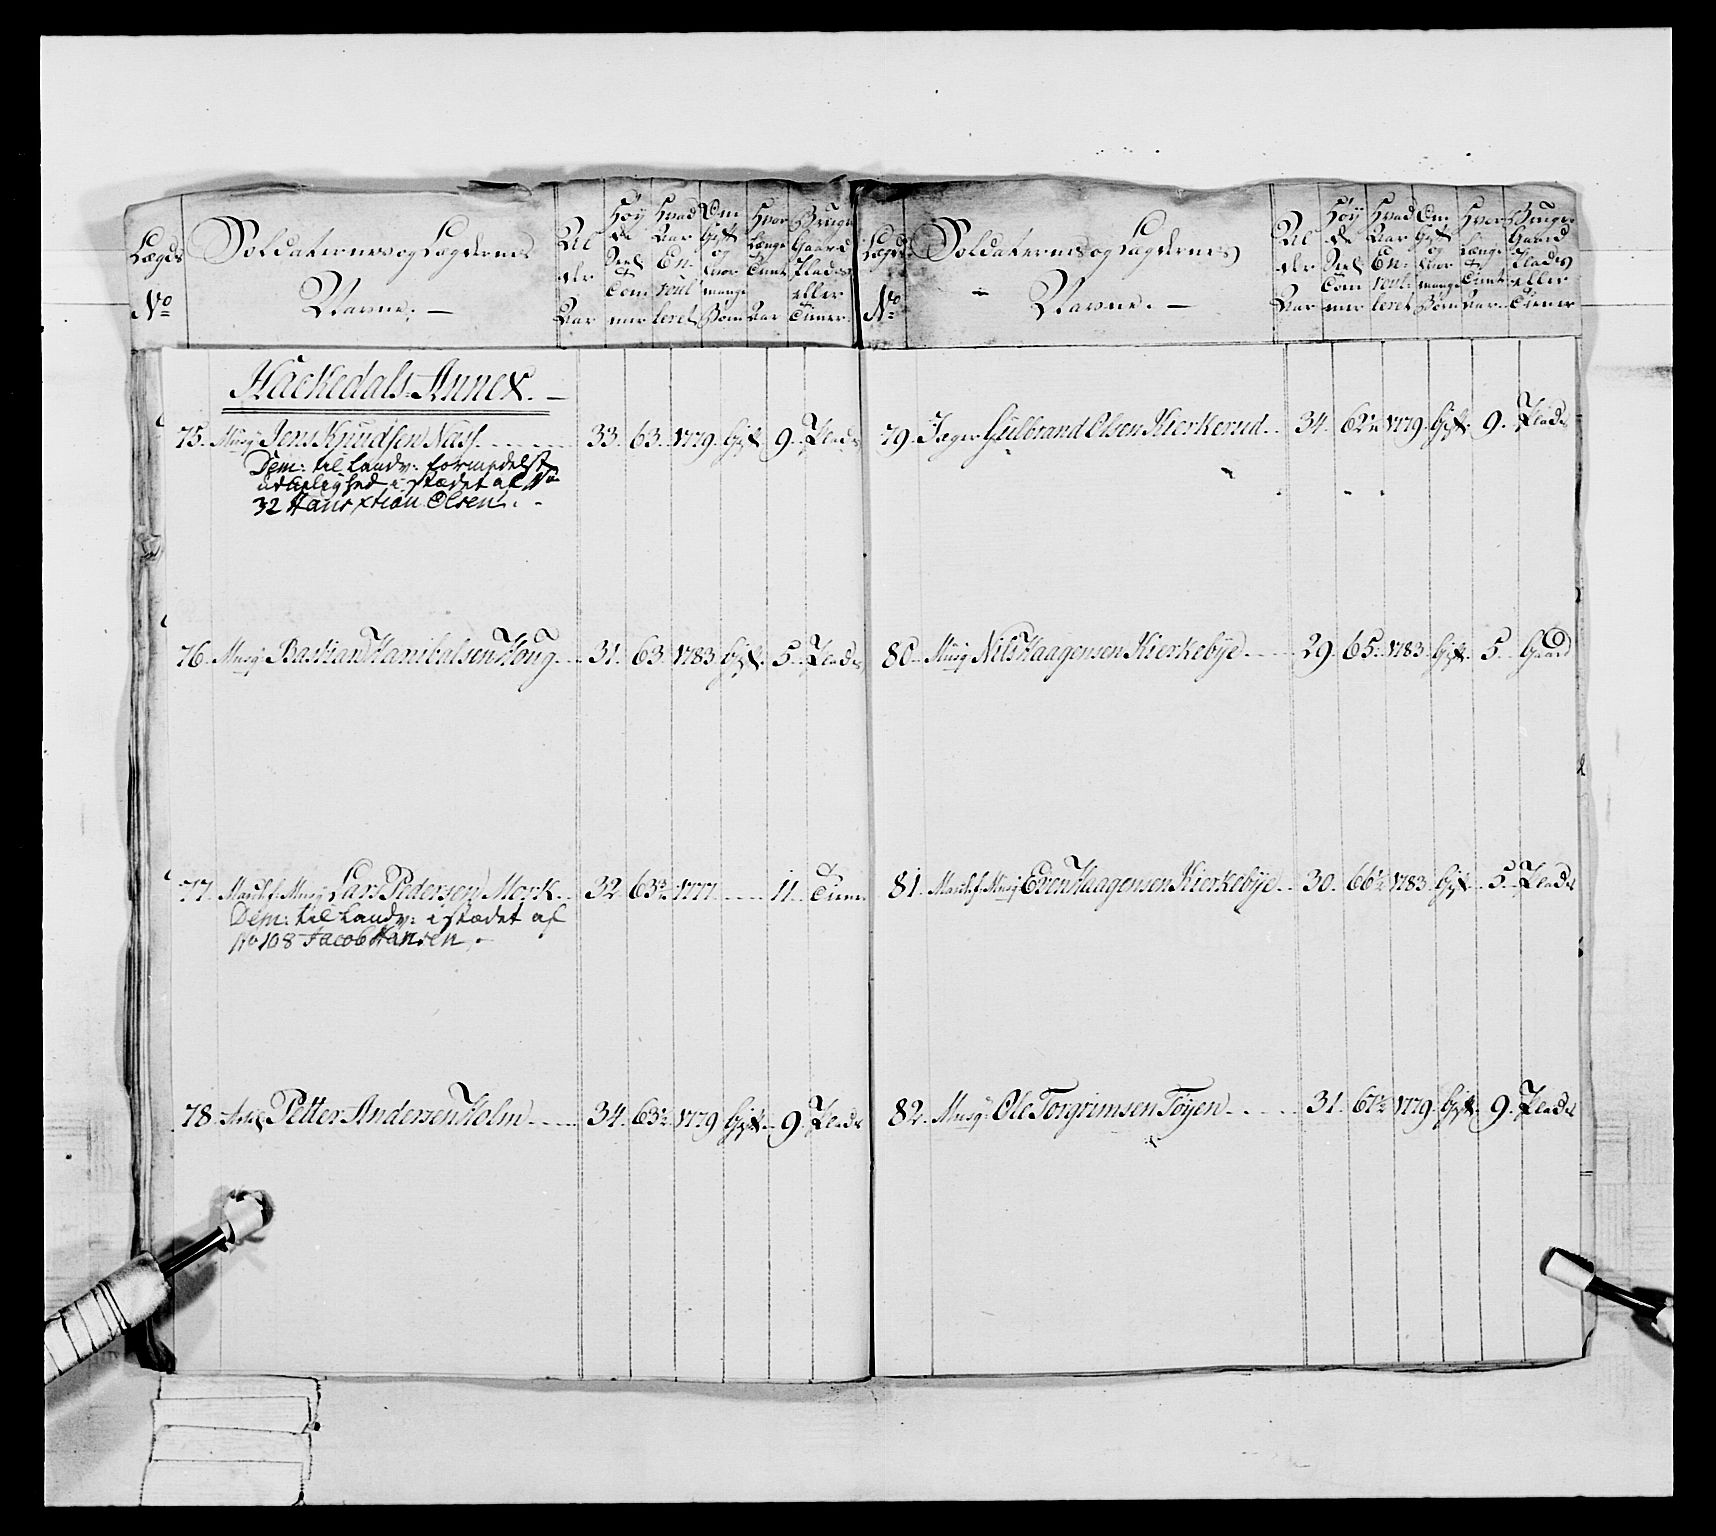 Lægds No
Soldaternes og Lægdernes Navne. —
Al der Aar
Høy de Sees Tom mer
Hvad Aar En roul leret
Om Gift og hvor mange Børn
Hvor Længe Tient Aar
Bruger Gaard Pladtz eller Tiener
Lægds No
Soldaternes og Lægdernes Navne. —
Al der Aar
Høy de Sees Tom mer
Hvad Aar En roul leret
Om Gift og hvor mange Børn
Hvor Længe Tient Aar
Bruger Gaard Pladtz eller Tiener
Hackedals Annex. —
75. Musq Jens Knudsen Næss 33. 63. 1779. Gift. 9. Plads
Dem: til Landv: formedelst
udÿgtighed i stædet af No
32 Hans Xtian Olsen. -
76. Musq Bastian Hanibalsen Houg 31. 63. 1783. Gift. 5. Plads
77. Musq Lars Pedersen Mork 32. 63½. 1777. 11. Tiener
Dem: til Landv: i stædet af
No 108 Jacob Hansen. -
78. Petter Andersen Holm 34. 63½. 1779. Gift. 9. Plads
79. Jæger Gulbrand Olsen Kierkerud 34. 62½. 1779. Gift. 9. Plads
80. Musq Nils Haagensen Kierkebÿe 29. 65. 1783. Gift. 5. Gaard
81. Musq Even Haagensen Kierkebÿe 30. 66½. 1783. Gift. 5. Plads
82. Musq Ole Torgrimsen Töyen 31. 61½. 1779. Gift. 9. Plads